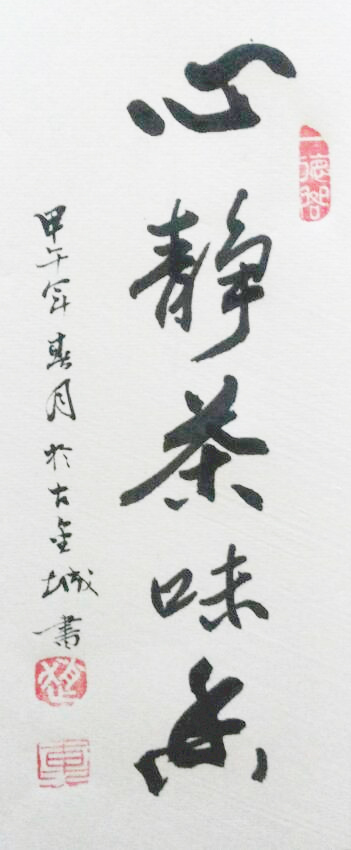 心静茶味香
甲午年春月於古金城書